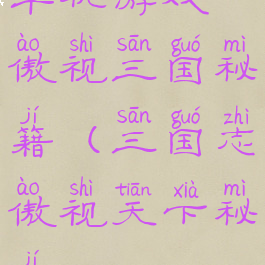 ào shì sān guó mì
傲视三国秘
jí sān guó zhì
籍(三国志
ào shì tiān xià mì
傲视天下秘
jí